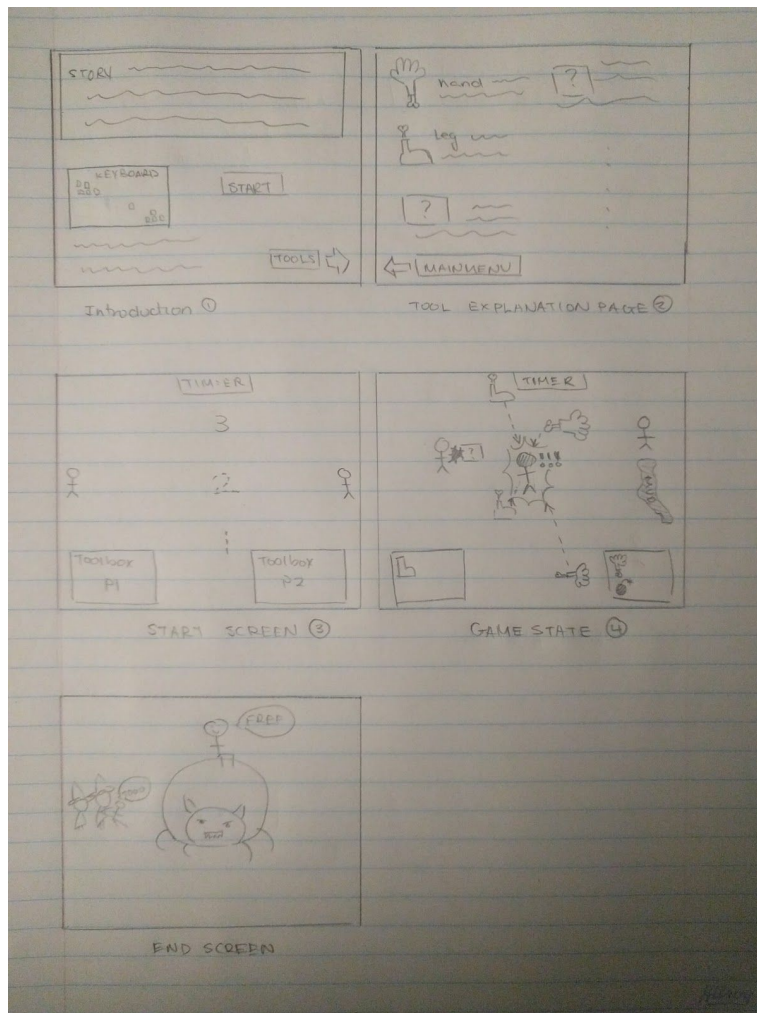 STORY
KEYBOARD
START
TOOLS
Introduction ①
hand
?
Leg
?
MAINMENU
TOOL EXPLANATION PAGE ②
TIMER
3
2
Toolbox
P1
Toolbox
P2
START SCREEN ③
TIMER
?
!!!
GAME STATE ④
FREE
END SCREEN